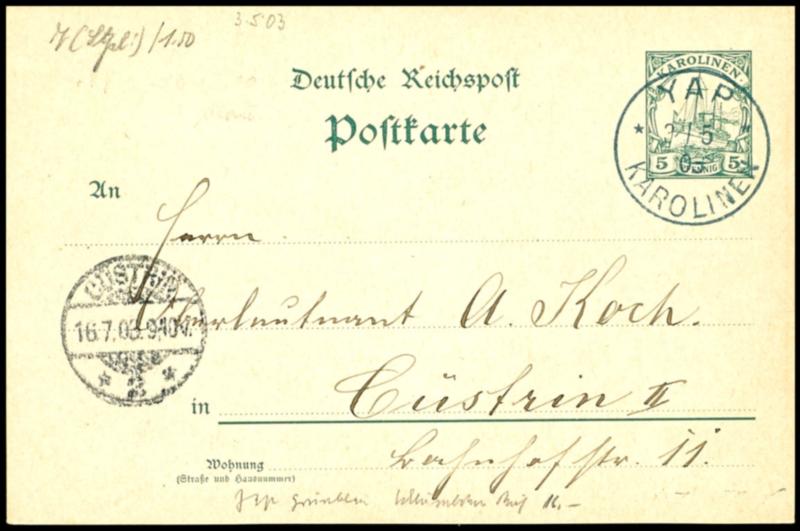 3.5.03
/1.50
Deutsche Reichspost
Postkarte
KAROLINEN
5 PFENNIG 5
YAP
3/5
03
KAROLINEN
An
Herrn
Oberleutnant A. Koch.
CÜSTRIN
16.7.03. 9-10V.
* 2 *
in Cüstrin II
Wohnung
(Straße und Hausnummer)
Bahnhofstr. 11.